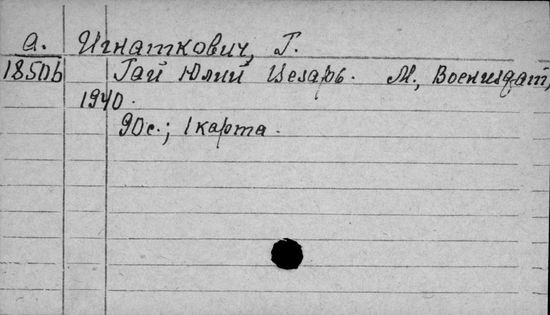 а. Игнаткович, Г.
18506 Гай Юлий Цезарь. М., Воениздат,
1940.
90с.; 1 карта.